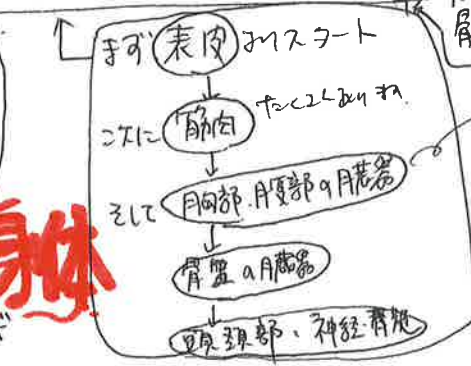 まず 表皮 よりスタート
次に 筋肉 たくさんあるね
そして 胸部、腹部の臓器
骨盤の臓器
頭頚部、神経・脊髄
身体
骨